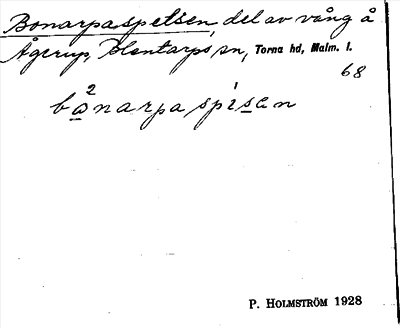 Bonarpaspetsen, del av vång å
Ågerup, Blentarps sn, Torna hd, Malm. l.
68
bo²narpaspi¹sen
P. HOLMSTRÖM 1928